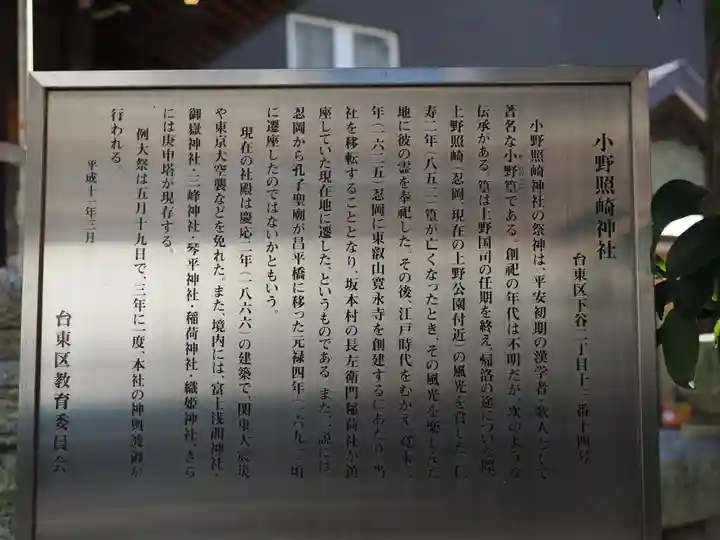 小野照崎神社
台東区下谷二丁目十三番十四号
小野照崎神社の祭神は、平安初期の漢学者・歌人として
著名な小野篁である。創祀の年代は不明だが、次のような
伝承がある。篁は上野国司の任期を終え、帰洛の途についた際、
上野照崎(忍岡、現在の上野公園付近)の風光を賞した。仁
寿二年(八五二)篁が亡くなったとき、その風光を楽しんだ
地に彼の霊を奉祀した。その後、江戸時代をむかえ、寛永二
年(一六二五)忍岡に東叡山寛永寺を創建するにあたり、当
社を移転することとなり、坂本村の長左衛門稲荷社が鎮
座していた現在地に遷した、というものである。また、一説には、
忍岡から孔子聖廟が昌平橋に移った元禄四年(一六九一)頃
に遷座したのではないかともいう。
現在の社殿は慶応二年(一八六六)の建築で、関東大震災
や東京大空襲などを免れた。また、境内には、富士浅間神社・
御嶽神社・三峰神社・琴平神社・稲荷神社・織姫神社、さら
には庚申塔が現存する。
例大祭は五月十九日で、三年に一度、本社の神輿渡御が
行われる。
平成十一年三月
台東区教育委員会